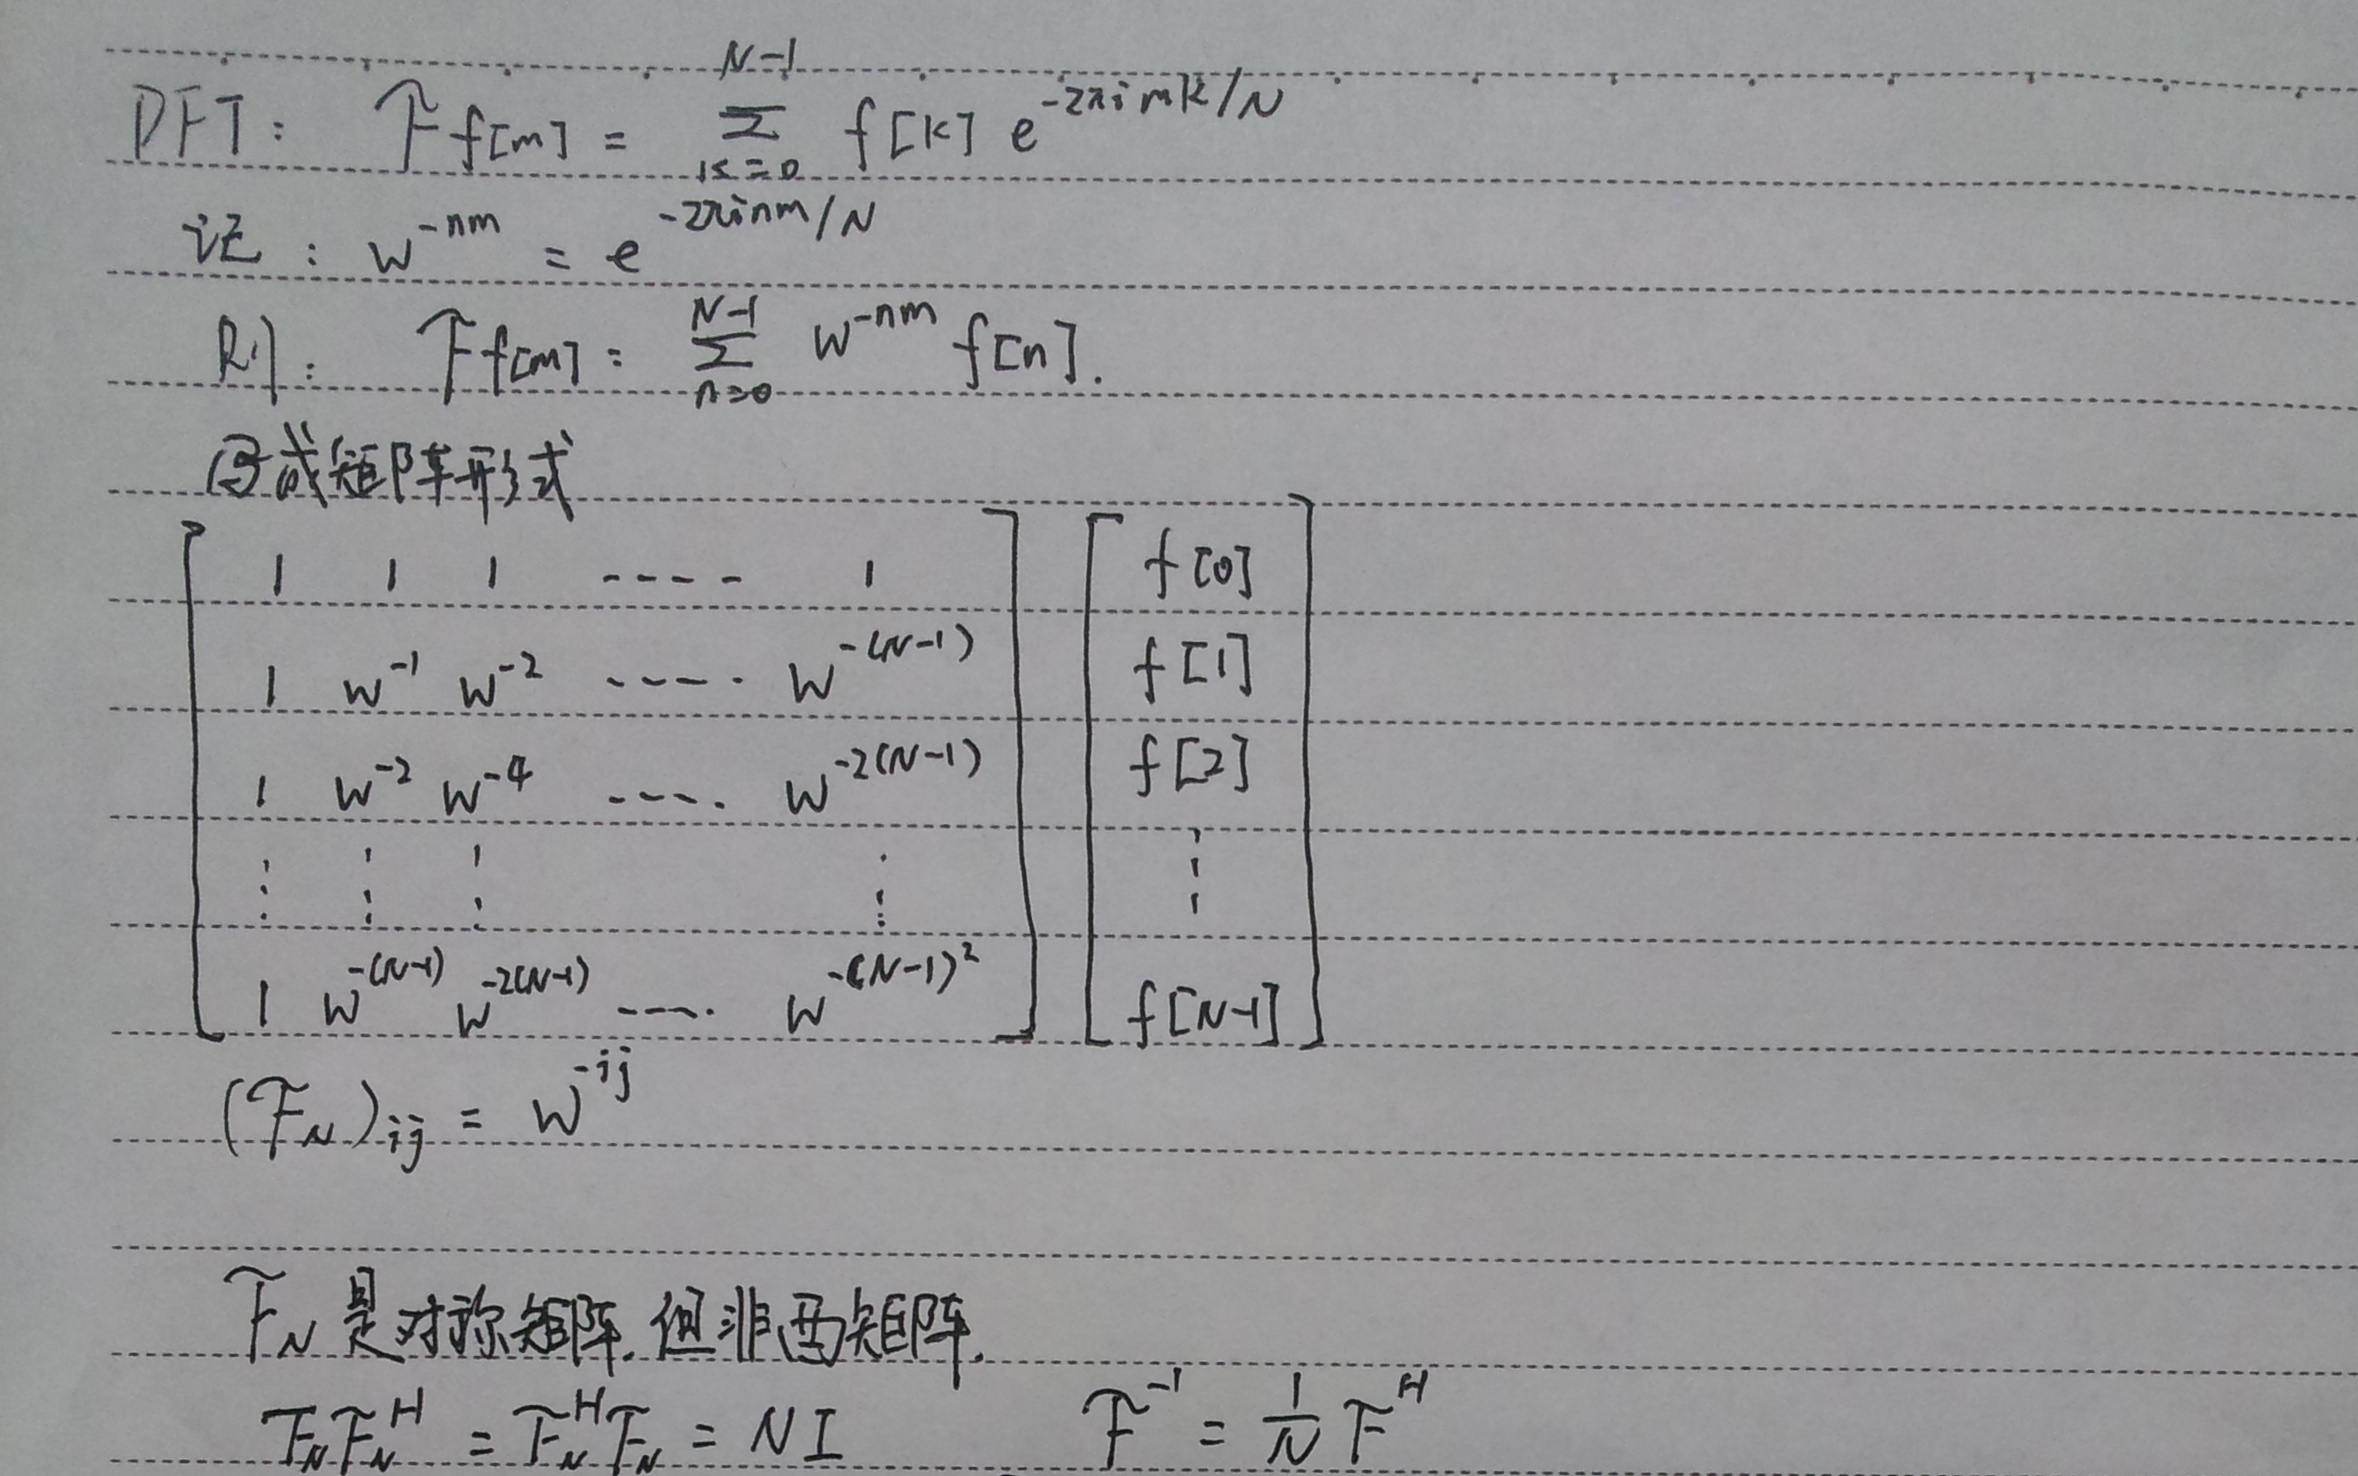 DFT: 𝓕f[m] = Σ_{k=0}^{N-1} f[k] e^{-2πimk/N}
记: w^{-nm} = e^{-2πinm/N}
则: 𝓕f[m] = Σ_{n=0}^{N-1} w^{-nm} f[n].
写成矩阵形式
1 1 1 ----- 1 f[0]
1 w^{-1} w^{-2} ----- w^{-(N-1)} f[1]
1 w^{-2} w^{-4} ----. w^{-2(N-1)} f[2]
⋮ ⋮ ⋮ ⋮ ⋮
1 w^{-(N-1)} w^{-2(N-1)} ----. w^{-(N-1)^2} f[N-1]
(𝓕_N)_{ij} = w^{-ij}
𝓕_N 是对称矩阵.但非酉矩阵.
𝓕_N𝓕_N^H = 𝓕_N^H𝓕_N = NI 𝓕^{-1} = \frac{1}{N} 𝓕^H